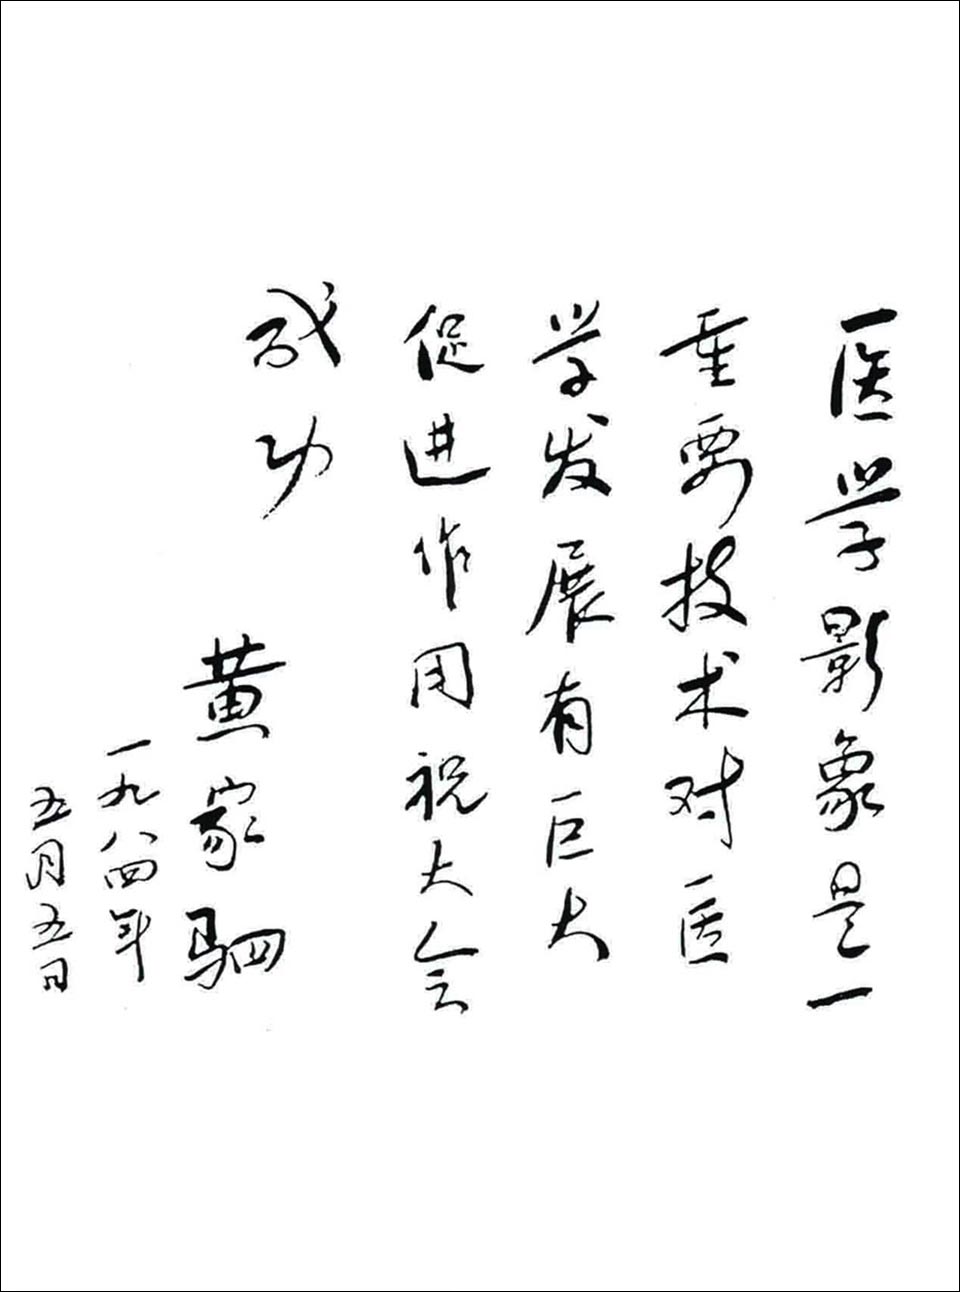 医学影象是一
重要技术对医
学发展有巨大
促进作用祝大会
成功
黄家驷
一九八四年
五月五日